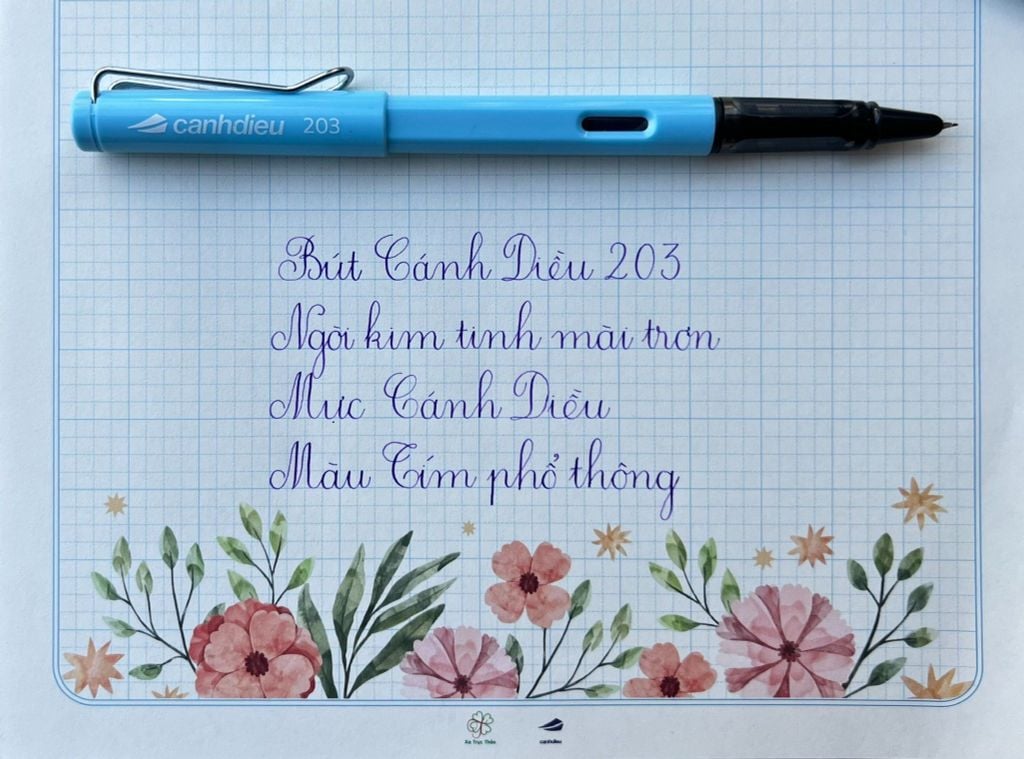 canhdieu 203
Bút Cánh Diều 203
Ngòi kim tinh mài trơn
Mực Cánh Diều
Màu Tím phổ thông
canhdieu